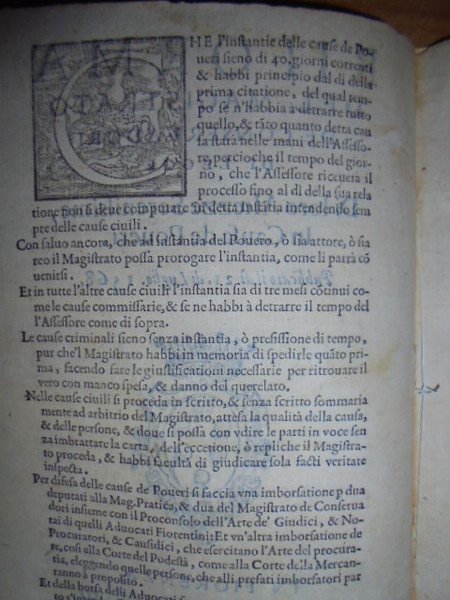 CHE l'instantie delle cause de Po
ueri sieno di 40. giorni correnti
& habbi principio dal di della
prima citatione, del qual tem
po se n'habbia à detrarre tutto
quello, & tãto quanto detta cau
sa starà nelle mani dell'Assesso
re, porcioche il tempo del gior
no, che l'Assessore riceuerà il
processo fino al dì della sua rela
tione non si deue computare in detta instãtia intendendo sem
pre delle cause ciuili.
Con saluo ancora, che ad instantia del Pouero, ò sia attore, ò sia
reo il Magistrato possa prorogare l'instantia, come li parrà cõ
uenirsi.
Et in tutte l'altre cause ciuili l'instantia sia di tre mesi cõtinui co
me le cause commissarie, & se ne habbi à detrarre il tempo del
l'Assessore come di sopra.
Le cause criminali sieno senza instantia, ò prefissione di tempo,
pur che'l Magistrato habbi in memoria di spedirle quãto pri
ma, facendo fare le giustificationi necessarie per ritrouare il
vero con manco spesa, & danno del querelato.
Nelle cause ciuili si proceda in scritto, & senza scritto sommaria
mente ad arbitrio del Magistrato, attesa la qualità della causa,
& delle persone, & doue si possa con vdire le parti in voce sen
za imbrattare la carta, dell'eccetione, ò repliche il Magistra
to proceda, & habbi facultà di giudicare sola facti veritate
inspecta.
Per difesa delle cause de Poueri si faccia vna imborsatione p dua
deputati alla Mag. Pratica, & dua del Magistrato de Conserua
dori insieme con il Proconsolo dell'Arte de' Giudici, & No
tai di quelli Aduocati Fiorentini: Et vn'altra imborsatione de
Procuratori, & Causidici, che esercitano l'Arte del procura
re, così alla Corte del Podestà, come alla Corte della Mercan
tia, eleggendo quelle persone, che alli prefati imborsatori par
ranno à proposito.
Et della borsa delli Aduocati